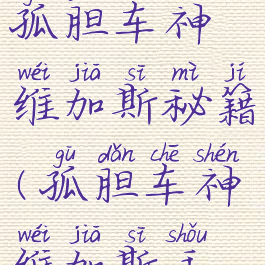 孤胆车神
wéi jiā sī mì jí
维加斯秘籍
gū dǎn chē shén
(孤胆车神
wéi jiā sī shǒu
维加斯手